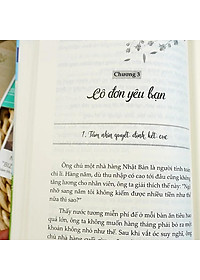 Chương 3
Cô đơn yêu bạn
1. Tâm niệm quyết định kết cục
Ông chủ một nhà hàng Nhật Bản là người tính toán
chi li. Hàng năm, dù thu nhập có cao tới đâu cũng không
tăng lương cho nhân viên, ông ta giải thích thế này: "Ngộ
nhỡ sang năm tôi không kiếm được nhiều tiền như thế
nữa thì sao?"
Thấy nước tương miễn phí để ở mỗi bàn ăn tiêu hao
quá lớn, ông ta không muốn hàng tháng phải bỏ ra một
khoản không nhỏ như thế. Sau khi vắt óc suy nghĩ, ông